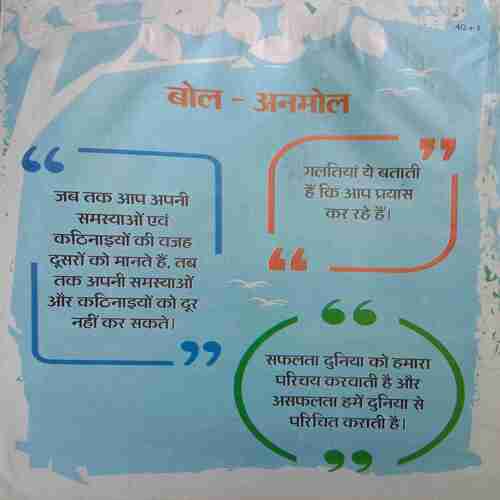 बोल - अनमोल
जब तक आप अपनी
समस्याओं एवं
कठिनाइयों की वजह
दूसरों को मानते हैं, तब
तक अपनी समस्याओं
और कठिनाइयों को दूर
नहीं कर सकते।
गलतियां ये बताती
हैं कि आप प्रयास
कर रहे हैं।
सफलता दुनिया को हमारा
परिचय करवाती है और
असफलता हमें दुनिया से
परिचित कराती है।